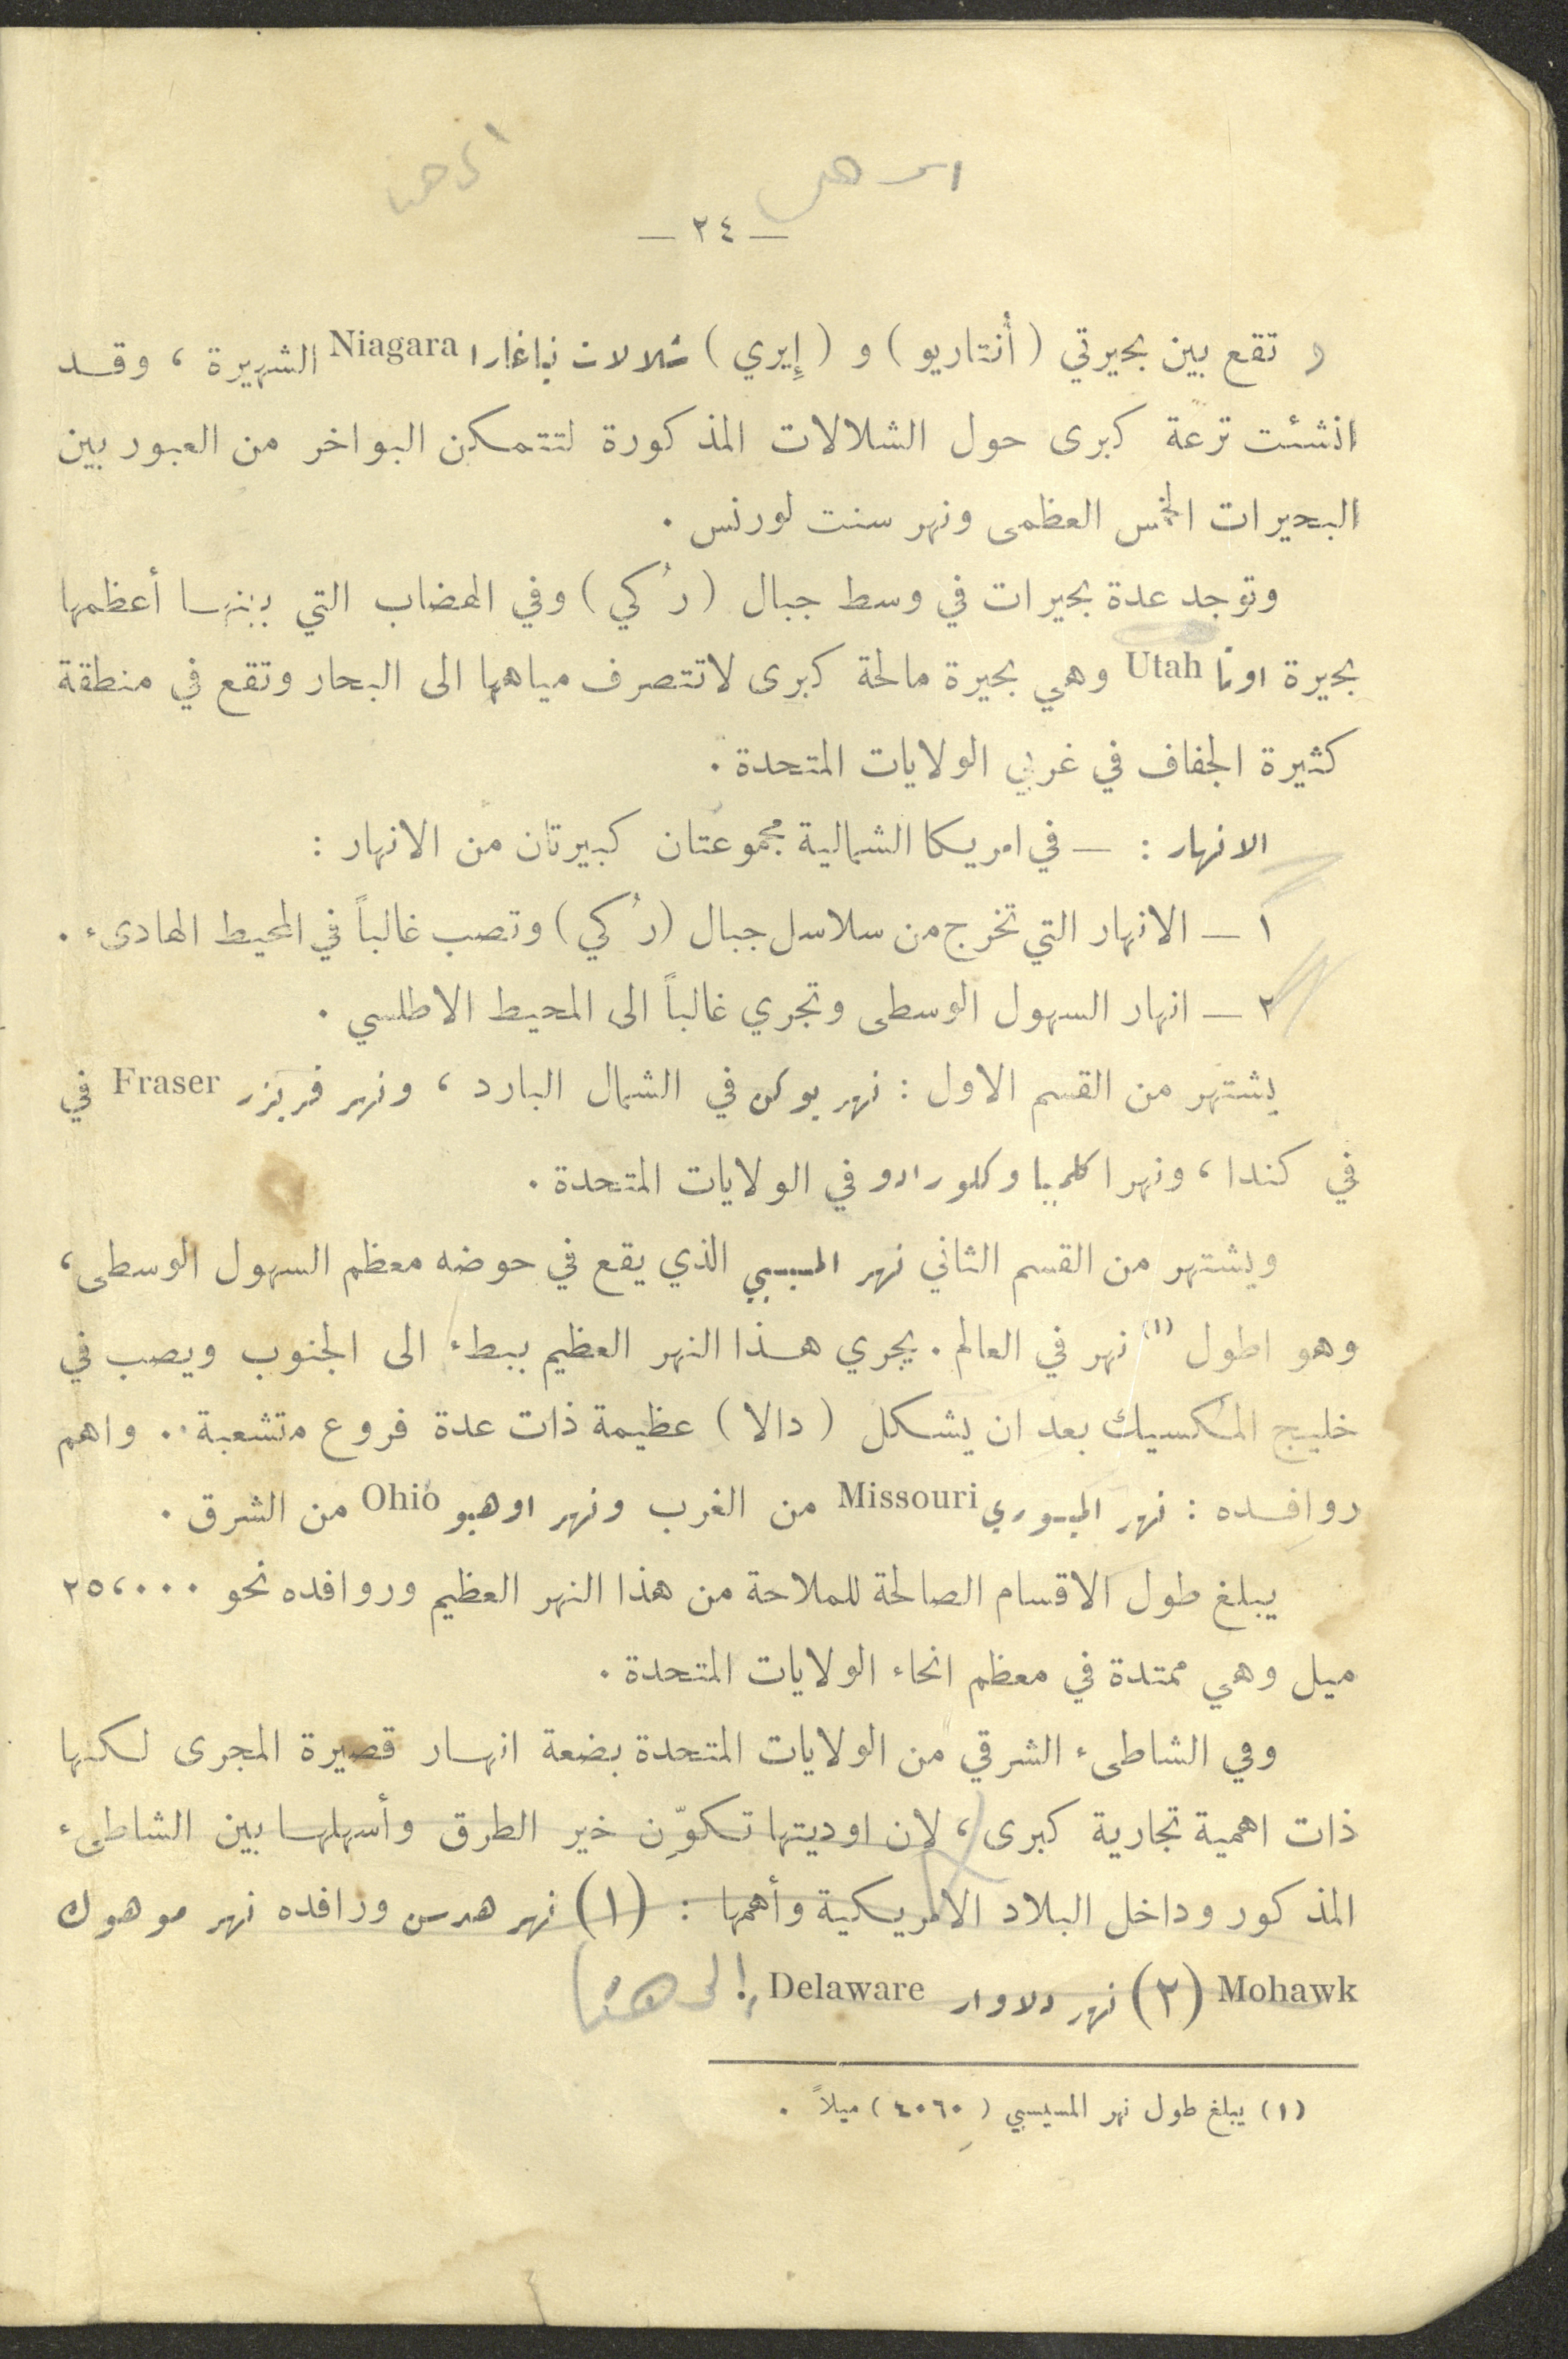 — ٢٤ —
تقع بين بحيرتي (أنتاريو) و (إيري) شلالات نياغارا Niagara الشهيرة ، وقد
انشئت ترعة كبرى حول الشلالات المذكورة لتتمكن البواخر من العبور بين
البحيرات الخمس العظمى ونهر سنت لورنس .
وتوجد عدة بحيرات في وسط جبال (رُكي) وفي الهضاب التي بينها أعظمها
بحيرة اوتا Utah وهي بحيرة مالحة كبرى لا تتصرف مياهها الى البحار وتقع في منطقة
كثيرة الجفاف في غربي الولايات المتحدة .
الانهار : — في امريكا الشمالية مجموعتان كبيرتان من الانهار :
١ — الانهار التي تخرج من سلاسل جبال (رُكي) وتصب غالباً في المحيط الهادىء .
٢ — انهار السهول الوسطى وتجري غالباً الى المحيط الاطلسي .
يشتهر من القسم الاول : نهر يوكن في الشمال البارد ، ونهر فريزر Fraser في
في كندا ، ونهرا كلمبيا وكلورادو في الولايات المتحدة .
ويشتهر من القسم الثاني نهر المسيسبي الذي يقع في حوضه معظم السهول الوسطى ،
وهو اطول (١) نهر في العالم . يجري هذا النهر العظيم ببطء الى الجنوب ويصب في
خليج المكسيك بعد ان يشكل (دالا) عظيمة ذات عدة فروع متشعبة . . واهم
روافده : نهر الميسوري Missouri من الغرب ونهر اوهيو Ohio من الشرق .
يبلغ طول الاقسام الصالحة للملاحة من هذا النهر العظيم وروافده نحو ٢٥،٠٠٠
ميل وهي ممتدة في معظم انحاء الولايات المتحدة .
وفي الشاطىء الشرقي من الولايات المتحدة بضعة انهار قصيرة المجرى لكنها
ذات اهمية تجارية كبرى ، لان اوديتها تكوّن خير الطرق وأسهلها بين الشاطىء
المذكور وداخل البلاد الامريكية وأهمها : (١) نهر هدسن ورافده نهر موهوك
Mohawk (٢) نهر دلاوار Delaware إلى هنا
(١) يبلغ طول نهر المسيسبي (٤٠٦٠) ميلاً .